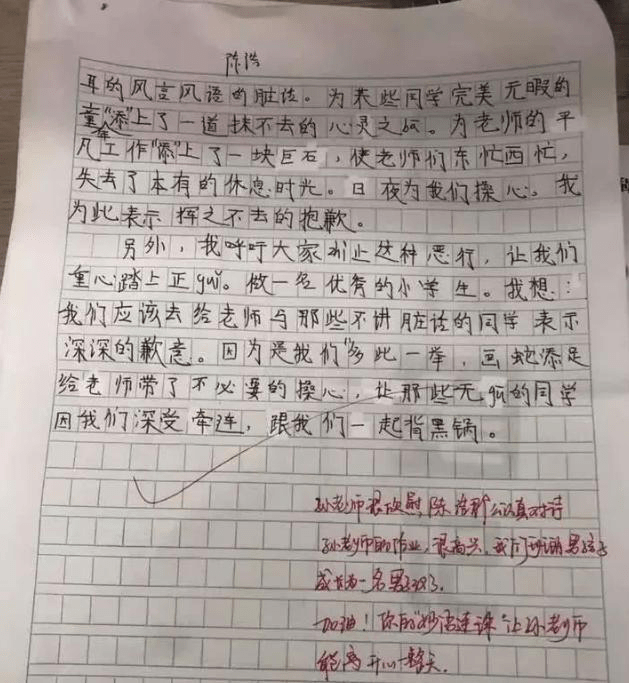 陈浩
耳的风言风语的脏话。为某些同学完美无暇的
童年“添”上了一道抹不去的心灵之。为老师的平
凡工作“添”上了一块巨石，使老师们东忙西忙，
失去了本有的休息时光。日夜为我们操心。我
为此表示挥之不去的抱歉。
另外，我呼吁大家制止这种恶行，让我们
重心踏上正gui。做一名优秀的小学生。我想：
我们应该去给老师与那些不讲脏话的同学表示
深深的歉意。因为是我们“多此一举，画蛇添足
给老师带了不必要的操心，让那些无辜的同学
因我们深受牵连，跟我们一起背黑锅。
孙老师很欣慰，陈浩能认真对待
孙老师的作业，很高兴，我们班的男孩子
成长为一名男子汉了。
加油！你的“妙语连珠”让孙老师
能够开心一整天。